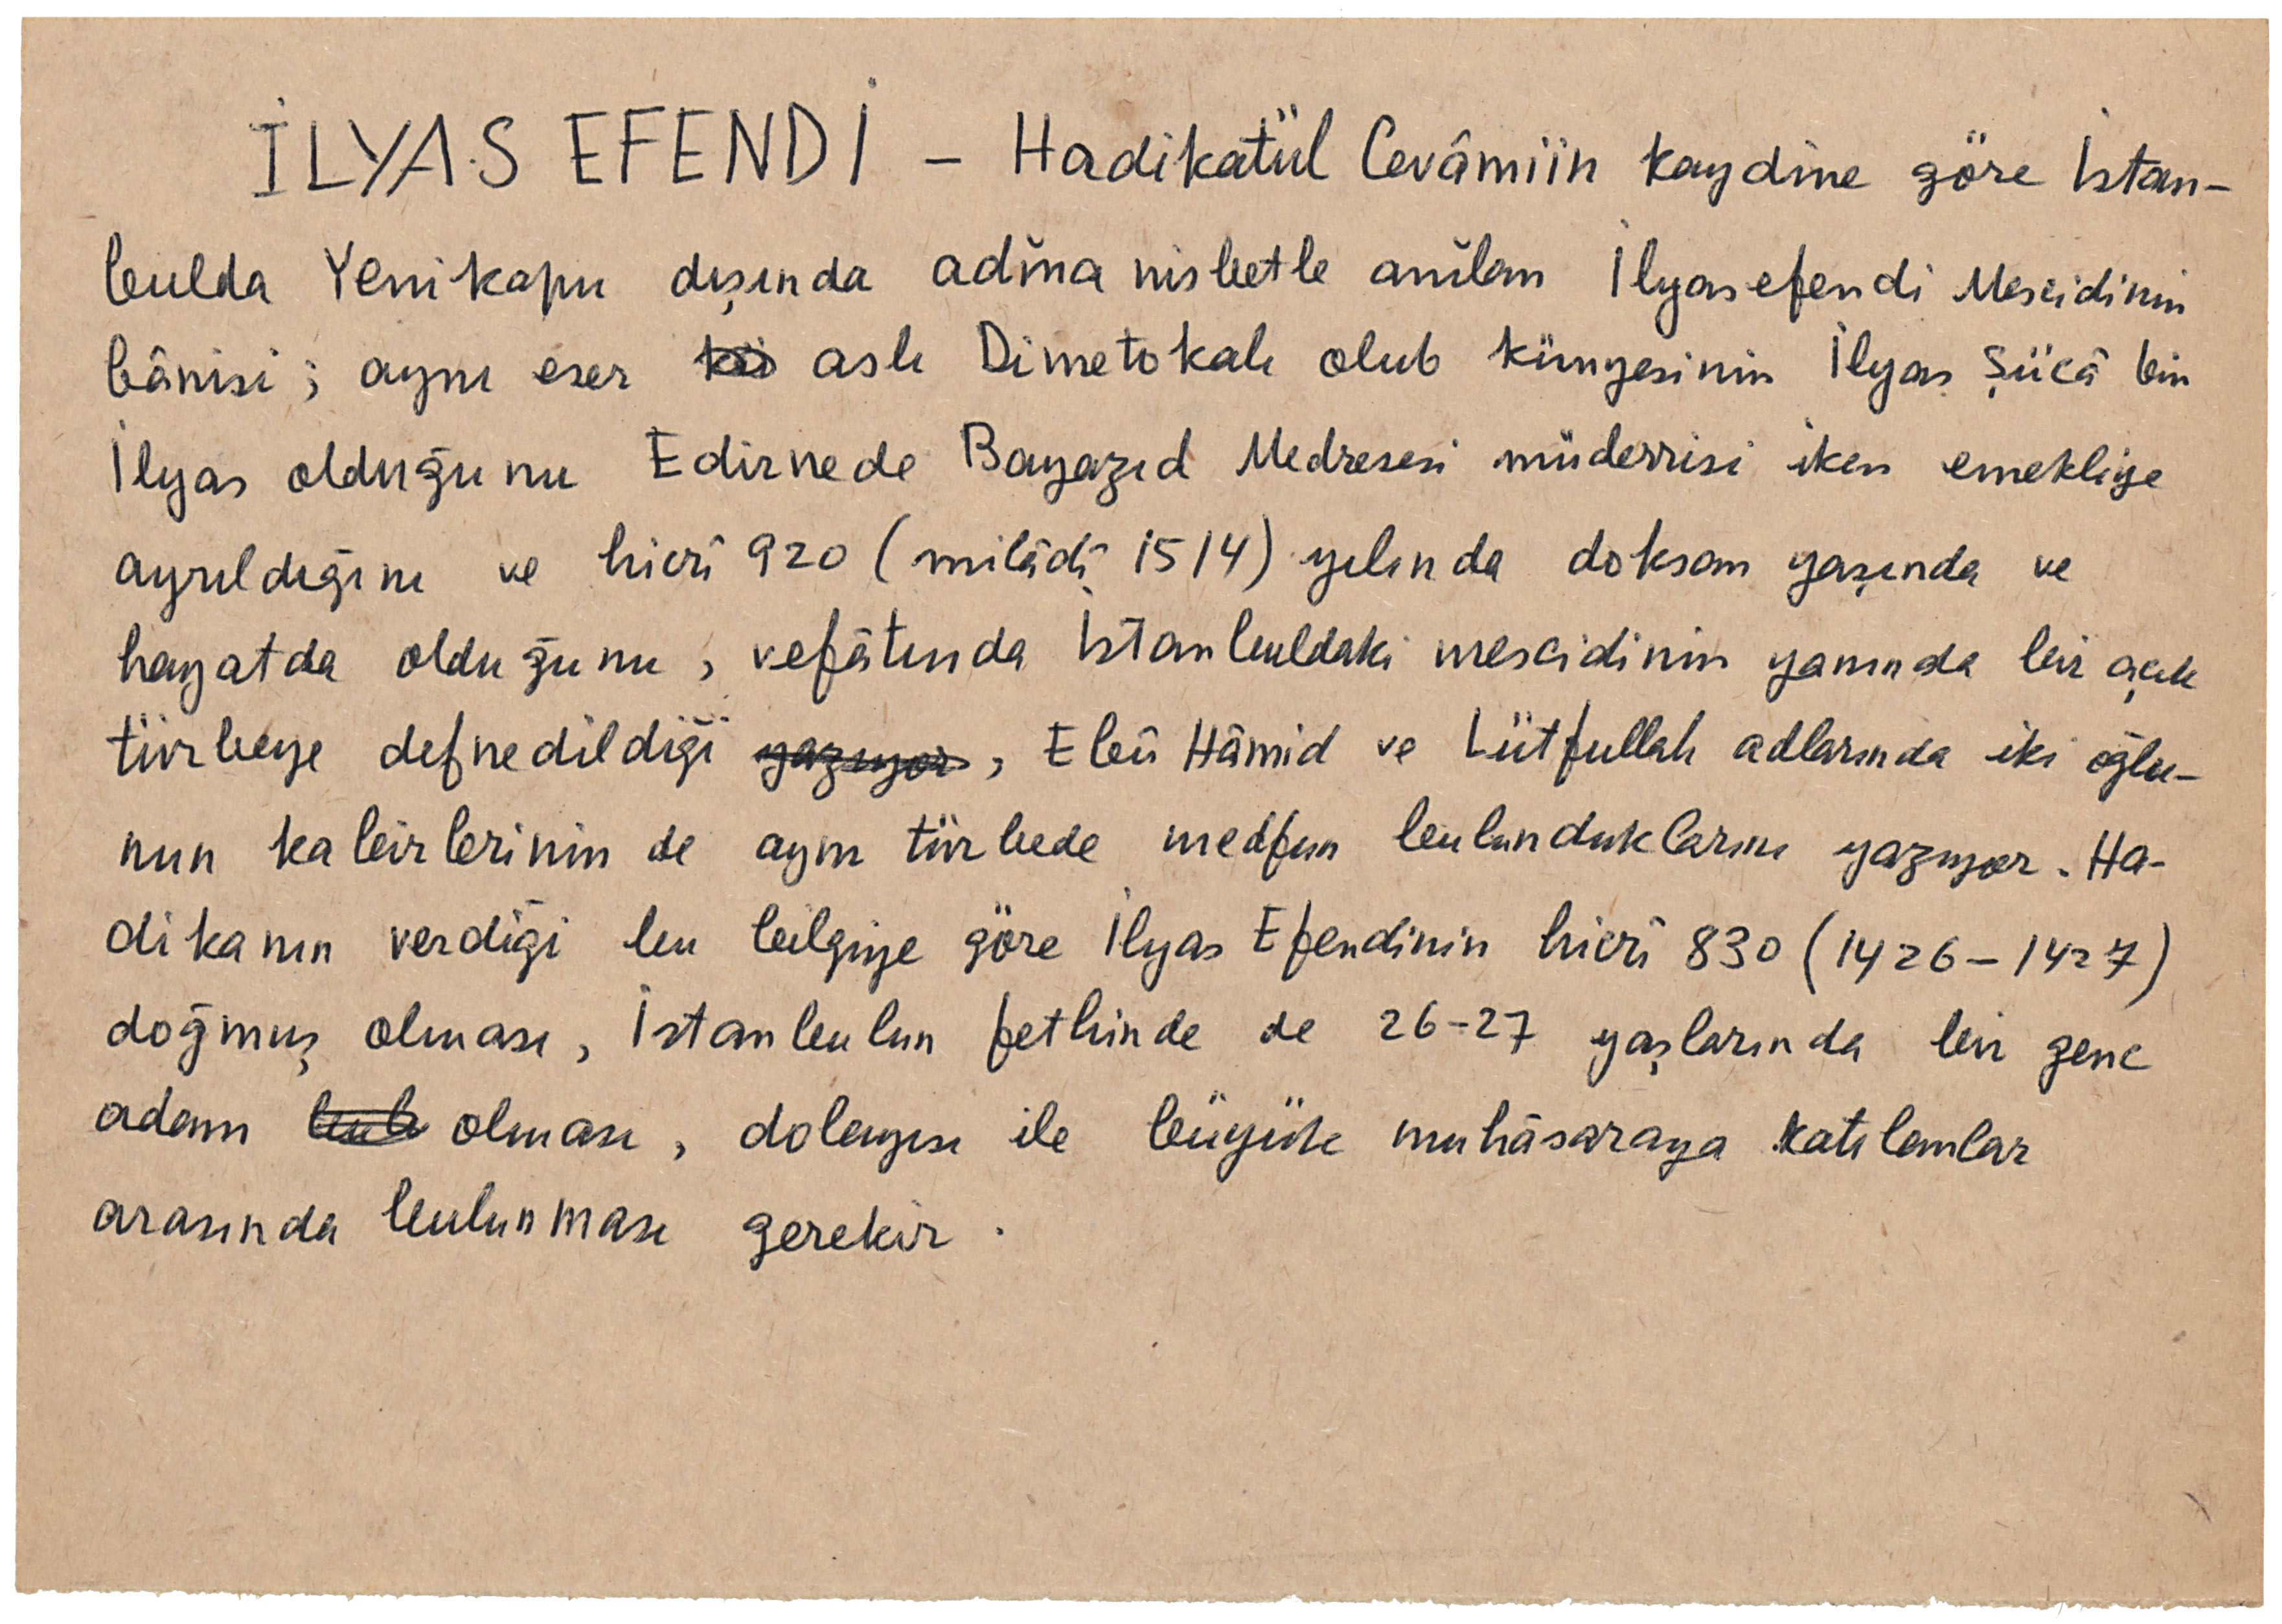 İLYAS EFENDİ – Hadikatül Cevâmiin kaydine göre İstan-
bulda Yenikapu dışında adına nisbetle anılan İlyasefendi Mescidinin
bânisi ; aynı eser aslı Dimetokalı olub künyesinin İlyas Şücâ bin
İlyas olduğunu Edirnede Bayazıd Medresesi müderrisi iken emekliye
ayrıldığını ve hicrî 920 (milâdî 1514) yılında doksan yaşında ve
hayatda olduğunu , vefâtında İstanbuldaki mescidinin yanında bir açık
türbeye defnedildiği yazıyor , Ebû Hâmid ve Lütfullah adlarında iki oğlu-
nun kabirlerinin de aynı türbede medfun bulunduklarını yazıyor . Ha-
dikanın verdiği bu bilgiye göre İlyas Efendinin hicrî 830 (1426–1427)
doğmuş olması , İstanbulun fethinde de 26-27 yaşlarında bir genc
adam olması , dolayısı ile büyük muhâsaraya katılanlar
arasında bulunması gerekir .